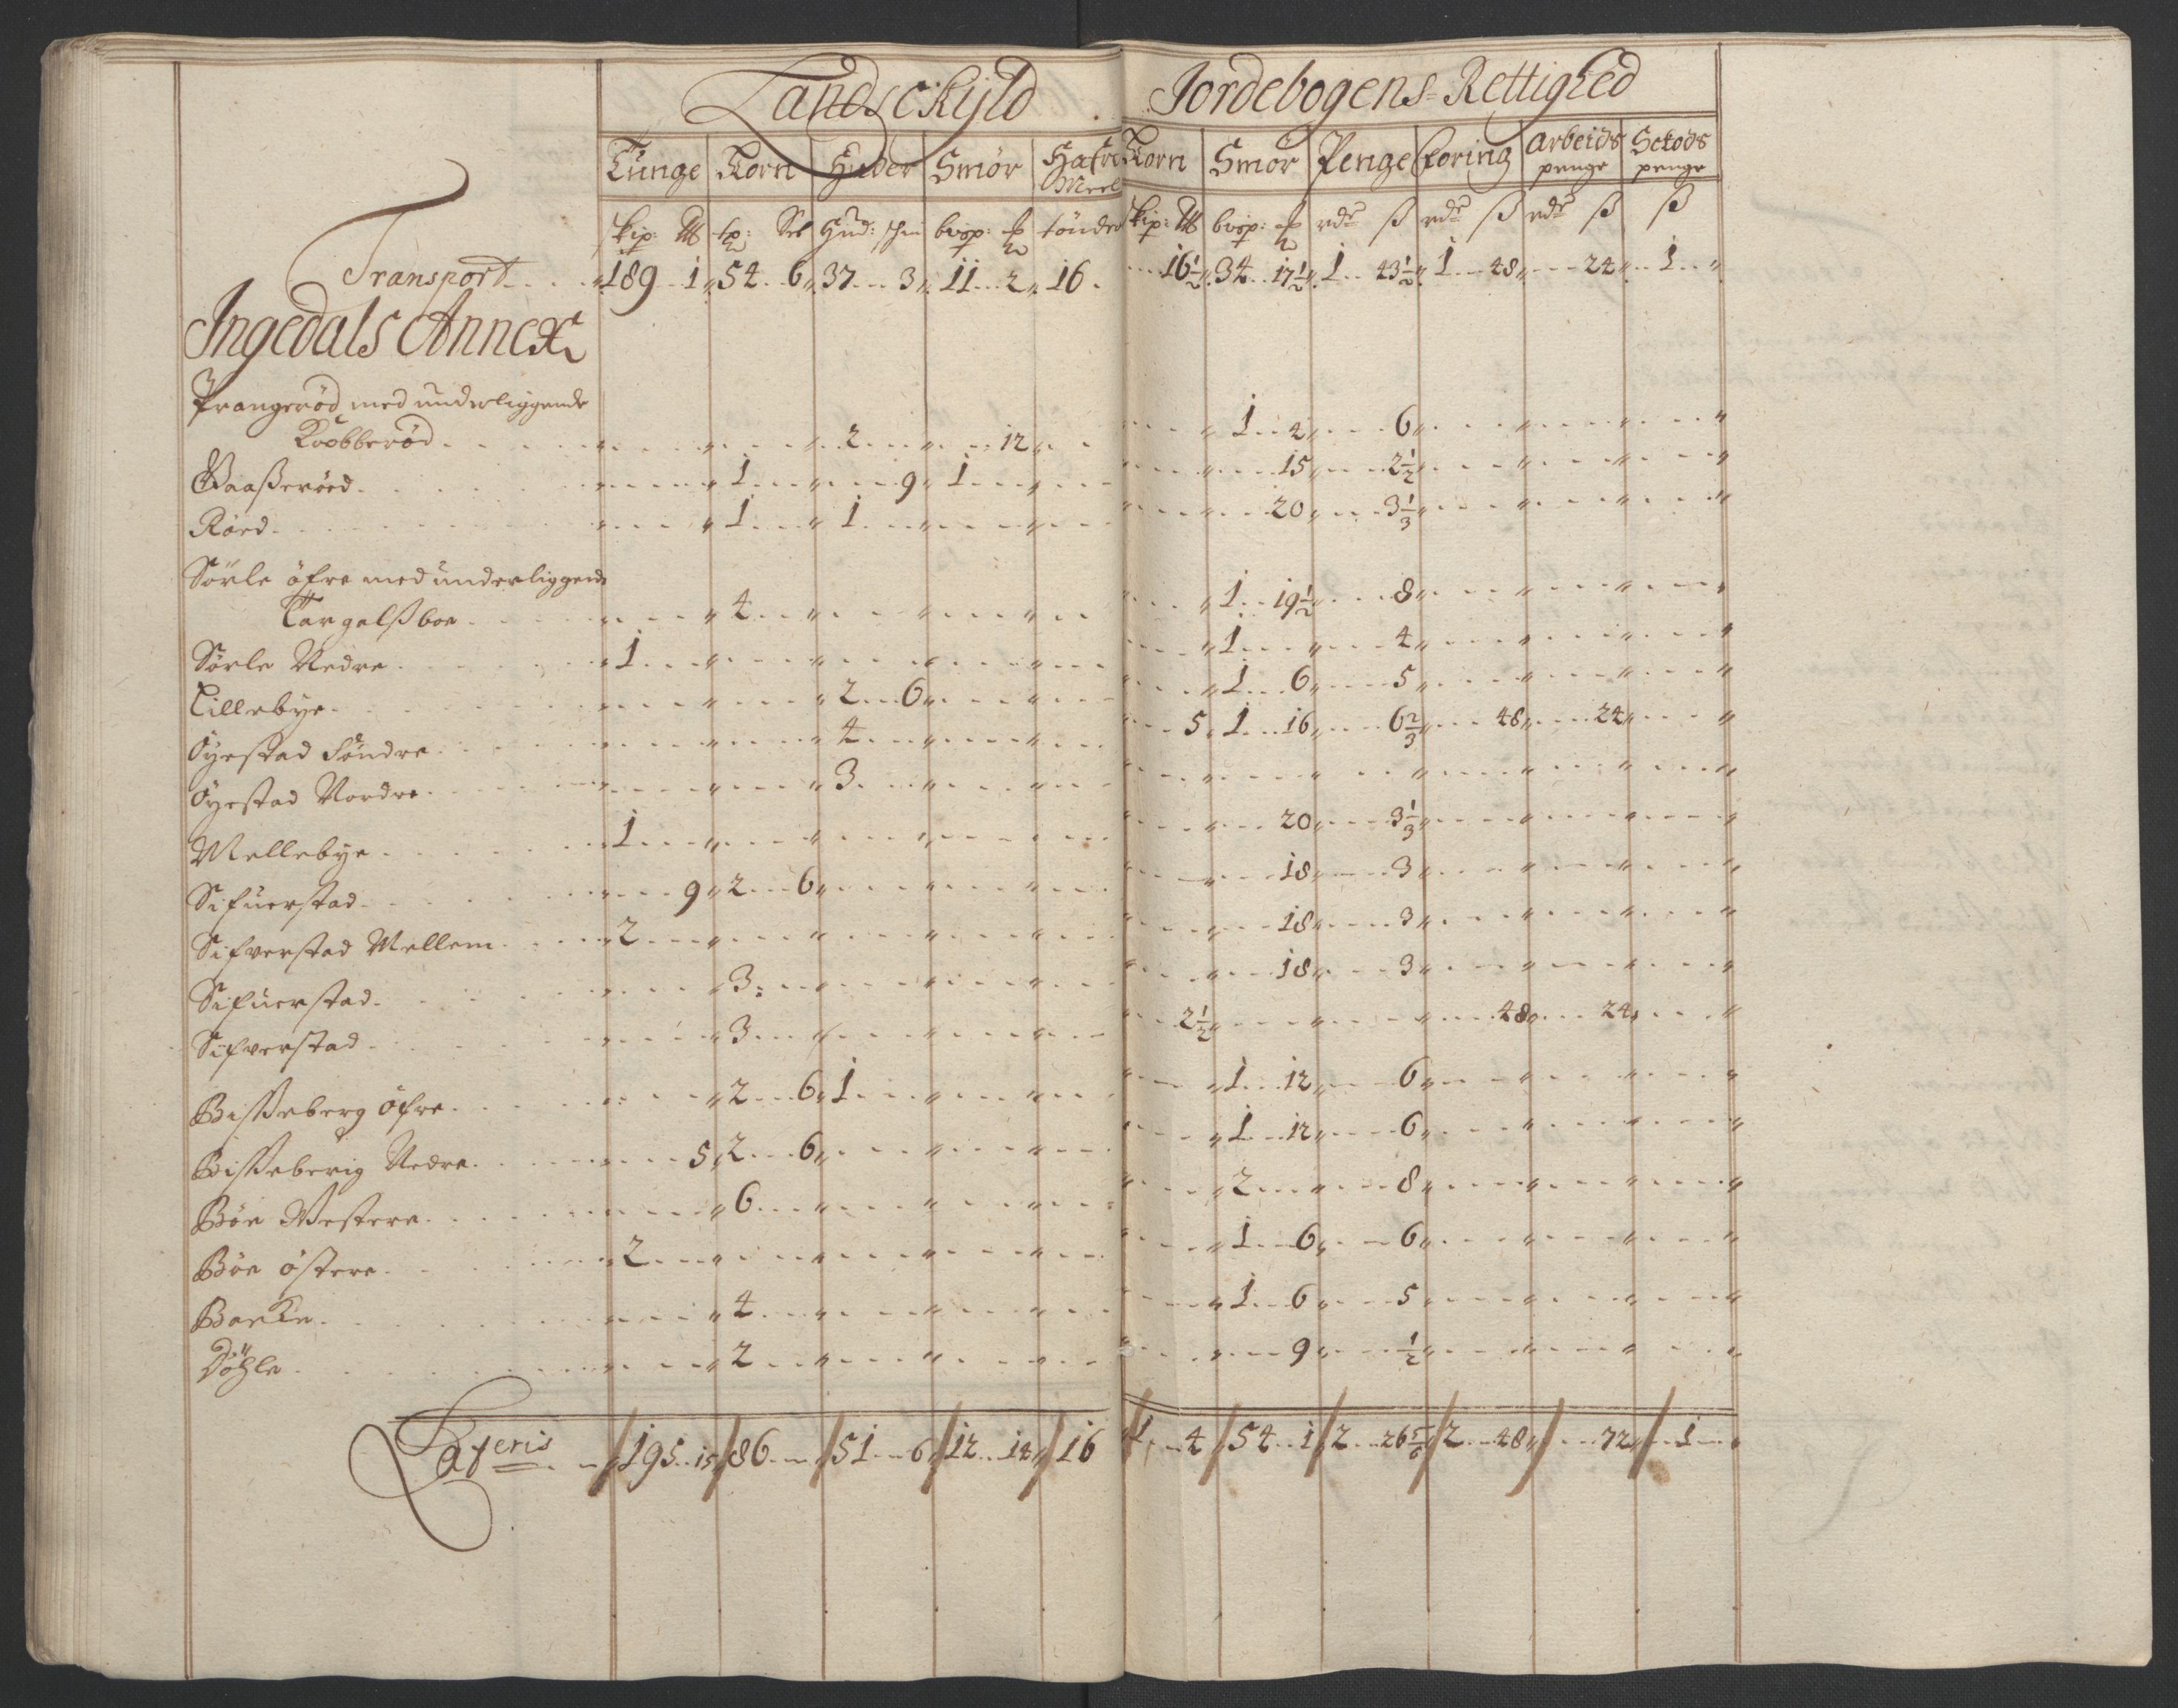 Landsckyld Jordebogens Rettighed
Tunge Korn Huder Smör Hafre Meel Korn Smör Penge foring Arbeids penge Sckods penge
skip: tt Sp: Set Hud: schin bvsp: tönder skip: tt bvsp: rdr ß rdr ß rdr ß ß
Transport 189 1 54 6 37 3 11 2 16 16½ 34 17½ 1 43½ 1 48 24 1
Ingedals Annex
Prangeröd med underliggende
Kobberöd 2 12 1 4 6
Gaaßeröed 1 9 1 15 2½
Röed 1 1 20 3⅓
Sörle öfre med underliggende
Targelßboe 4 1 19½ 8
Sörle Nedre 1 1 4
Lillebye 2 6 1 6 5
Öyestad Söndre 4 5 1 16 6⅔ 48 24
Öyestad Nordre 3
Mellebye 1 20 3⅓
Sifuerstad 9 2 6 18 3
Sifverstad Mellem 2 18 3
Sifuerstad 3 18 3
Sifverstad 3 2½ 48 24
Bisseberg öfre 2 6 1 1 12 6
Bisseberig Nedre 5 2 6 1 12 6
Böe Vestere 6 2 8
Böe östere 2 1 6 6
Barke 4 1 6 5
Döhle 2 9 ½
Lateris 195 15 86 51 6 12 14 16 1 4 54 1 2 26⅚ 2 48 72 1